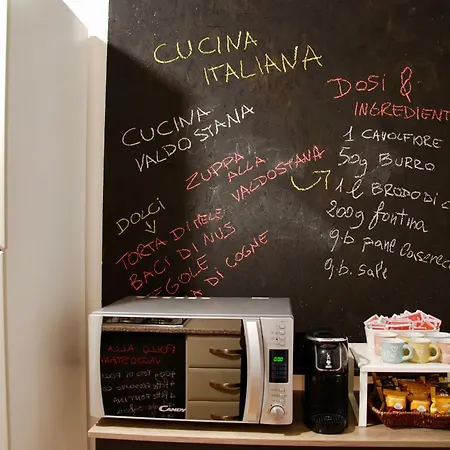 CUCINA
ITALIANA
CUCINA
VALDOSTANA
ZUPPA
ALLA
VALDOSTANA
DOLCI
TORTA DI MELE
BACI DI NUS
TEGOLE
DI COGNE
DOSI &
INGREDIENT
1 CAVOLFIORE
50g BURRO
1 l BRODO DI C
200g fontina
q.b. pane Casarecc
q.b. sale
CANDY